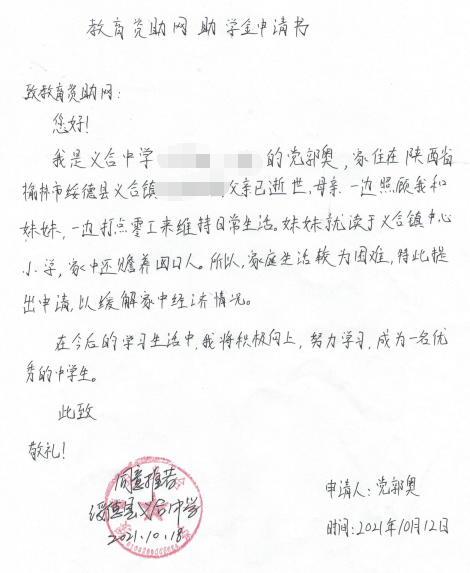 教育资助网助学金申请书
致教育资助网：
您好！
我是义合中学 的党郭奥，家住在陕西省
榆林市绥德县义合镇 父亲已逝世，母亲一边照顾我和
妹妹，一边打点零工来维持日常生活。妹妹就读于义合镇中心
小学，家中还赡养四口人。所以，家庭生活较为困难，特此提
出申请，以缓解家中经济情况。
在今后的学习生活中，我将积极向上，努力学习，成为一名优
秀的中学生。
此致
敬礼！
同意推荐
绥德县义合中学
2021.10.18
申请人：党郭奥
时间：2021年10月12日